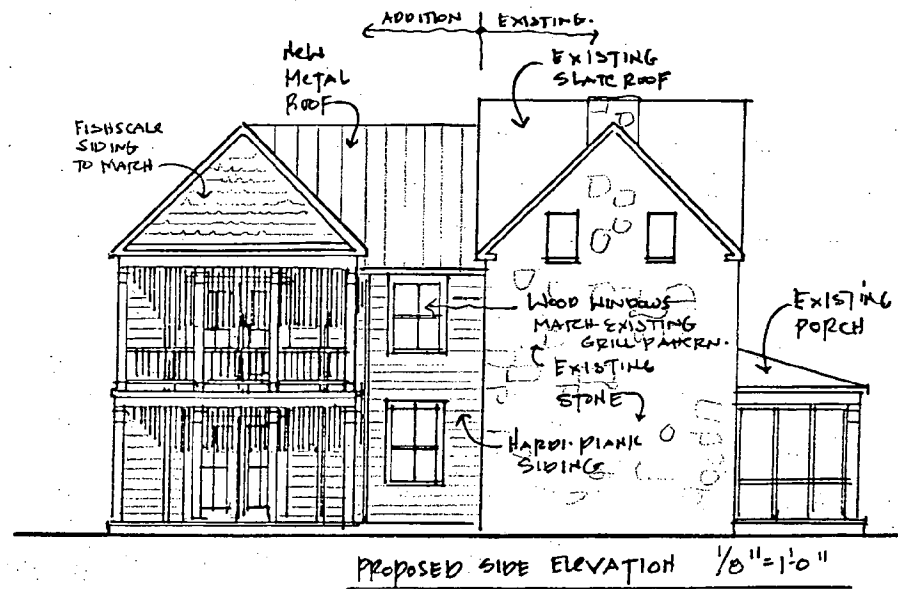 ADDITION EXISTING.
NEW
METAL
ROOF
EXISTING
SLATE ROOF
FISHSCALE
SIDING
TO MATCH
WOOD WINDOWS
MATCH EXISTING
GRILL PATTERN.
EXISTING
STONE
EXISTING
PORCH
HARDI-PLANK
SIDING
PROPOSED SIDE ELEVATION 1/8"=1'-0"